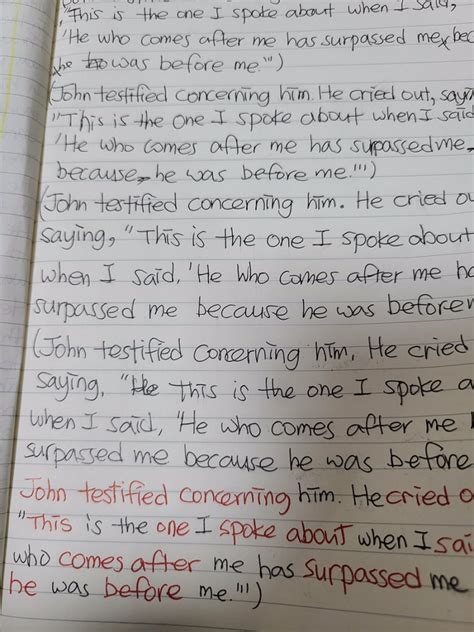 "This is the one I spoke about when I said,
'He who comes after me has surpassed me
he was before me.'")
(John testified concerning him. He cried out, sayi
"This is the one I spoke about when I said
'He who comes after me has supassed me,
because he was before me.'")
(John testified concerning him. He cried ou
saying, "This is the one I spoke about
when I said, 'He who comes after me ha
surpassed me because he was before
(John testified concerning him, He cried
saying, "He This is the one I spoke a
when I said, 'He who comes after me
surpassed me because he was before
John testified concerning him. He cried o
"This is the one I spoke about when I sai
who comes after me has surpassed me
he was before me.'")